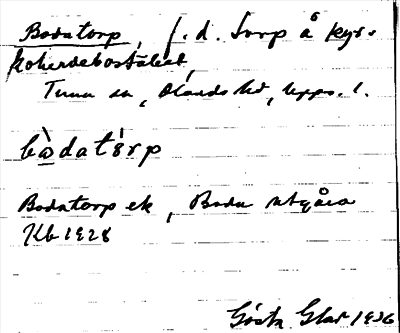 Bodatorp, f.d. torp å kyr-
koherdebostället,
Tuna sn, Olands hd, Upps. l.
bòdatórp
Bodatorp ek, Boda utgård
Kb 1928
Gösta Glas 1936